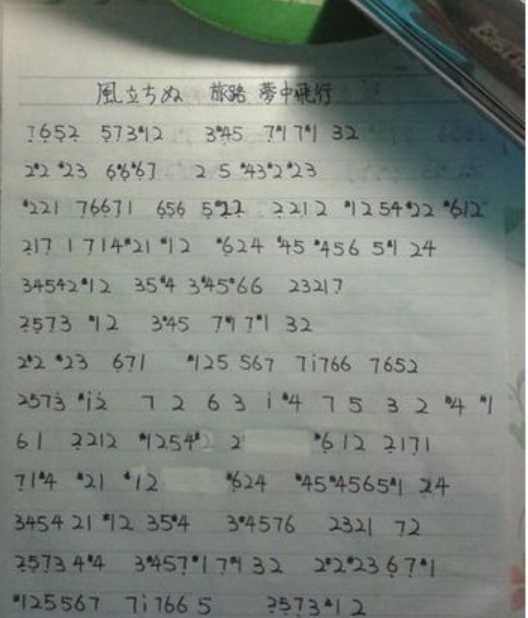 風立ちぬ 旅路 夢中飛行
7652 573#12 3#45 7#17#1 32
2#2 #23 6#6#67 2 5 #43#2#23
#221 76671 656 5#22 2212 #1254#22 #612
217 1 714#21 #12 #624 #45 #456 5#1 24
34542#12 35#4 3#45#66 23217
2573 #12 3#45 7#17#1 32
2#2 #23 671 #125 567 7i766 7652
2573 #i2 7 2 6 3 i #4 7 5 3 2 #4 #1
61 2212 #1254#2 2 #612 2171
71#4 #21 #12 #624 #45#4565#1 24
3454 21 #12 35#4 3#4576 2321 72
2573 4#4 3#457#17#1 32 2#2#23 67#1
#125567 7i766 5 2573#12